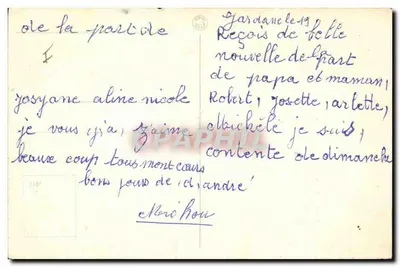 de la part de
I
Josyane aline nicole
je vous
beaux coup tous mont cours
bons jours de
Gardane le 19
Reçois de belle
nouvelle de part
de papa et maman,
Robert, Josette, arlette,
Michèle je suis,
contente de dimanche